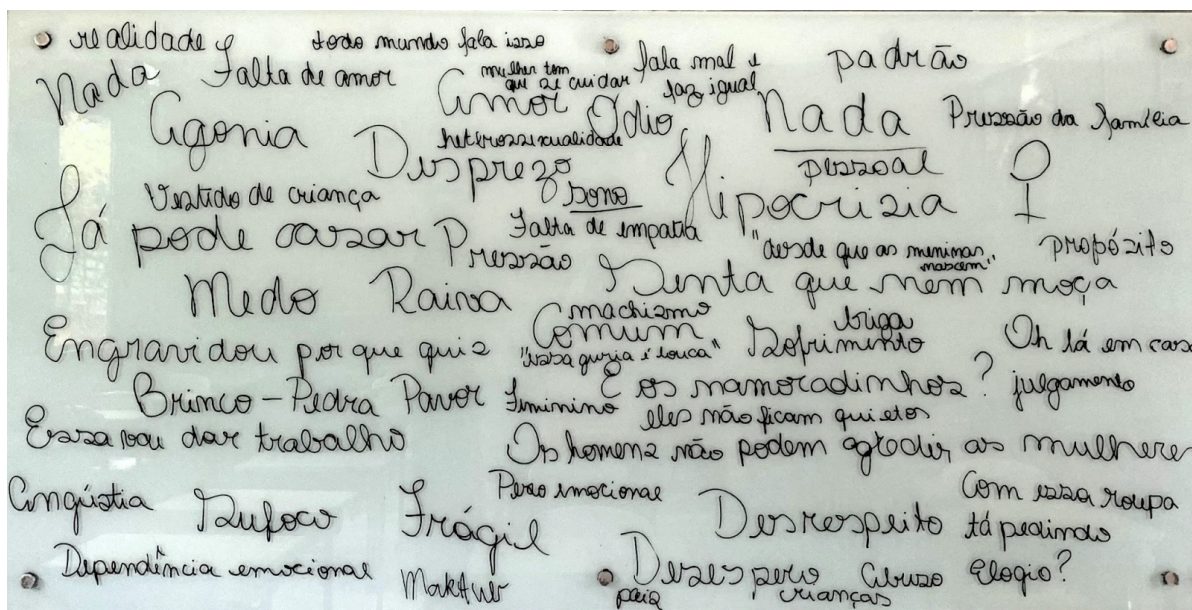 realidade todo mundo fala isso
Nada Falta de amor mulher tem que se cuidar fala mal e faz igual padrão
Agonia Amor Ódio Nada Pressão da família
heterossexualidade
Desprezo pessoal ♀
Vestido de criança sono Hipocrisia
Já pode casar Pressão Falta de empatia "desde que as meninas nascem" propósito
Medo Raiva Senta que nem moça
machismo
Engravidou porque quis Comum briga Oh lá em casa
"essa guria é louca" Sofrimento
Brinco - Pedra Pavor Feminino E os namoradinhos? julgamento
eles não ficam quietos
Essa vai dar trabalho Os homens não podem agredir as mulheres
Angústia Sufoco Frágil Peso emocional Desrespeito Com essa roupa tá pedindo
Dependência emocional Maktub Desespero Abuso Elogio?
pais crianças